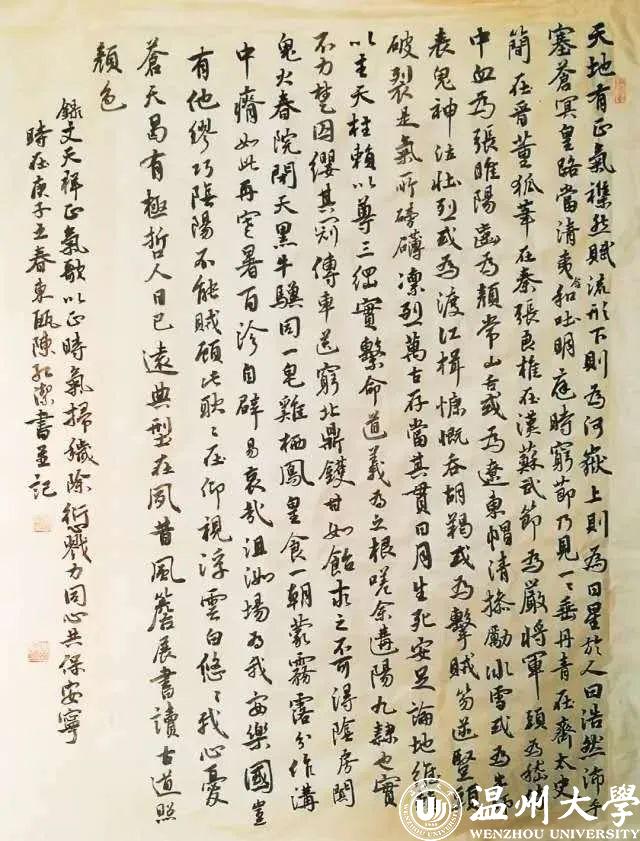 天地有正氣雜然賦流形下則為河嶽上則為日星於人曰浩然沛乎
塞蒼冥皇路當清夷含和吐明庭時窮節乃見一〻垂丹青在齊太史
簡在晉董狐筆在秦張良椎在漢蘇武節為嚴將軍頭為嵇侍
中血為張睢陽齒為顏常山舌或為遼東帽清操勵冰雪或為出師
表鬼神泣壯烈或為渡江楫慷慨吞胡羯或為擊賊笏逆豎頭
破裂是氣所磅礴凜烈萬古存當其貫日月生死安足論地維賴
以立天柱賴以尊三綱實繫命道義為之根嗟余遘陽九隸也實
不力楚囚纓其冠傳車送窮北鼎鑊甘如飴求之不可得陰房闃
鬼火春院閉天黑牛驥同一皂雞栖鳳皇食一朝蒙霧露分作溝
中瘠如此再寒暑百沴自辟易哀哉沮洳場為我安樂國豈
有他繆巧陰陽不能賊顧此耿〻在仰視浮雲白悠〻我心憂
蒼天曷有極哲人日已遠典型在夙昔風簷展書讀古道照
顏色
錄文天祥正氣歌以正時氣掃穢除戮力同心共保安寧
時在庚子立春東甌陳潔書並記
温州大学
WENZHOU UNIVERSITY